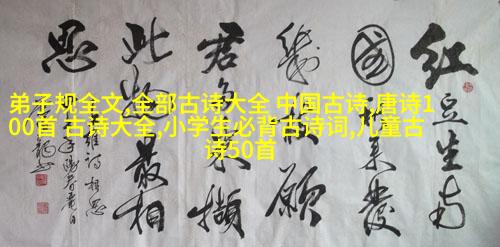 弟子规全文,全部古诗大全 中国古诗,唐诗1
00首 古诗大全,小学生必背古诗词,儿童古
诗50首
红豆生南
國春来發
幾枝願
君多采撷
此物最相
思